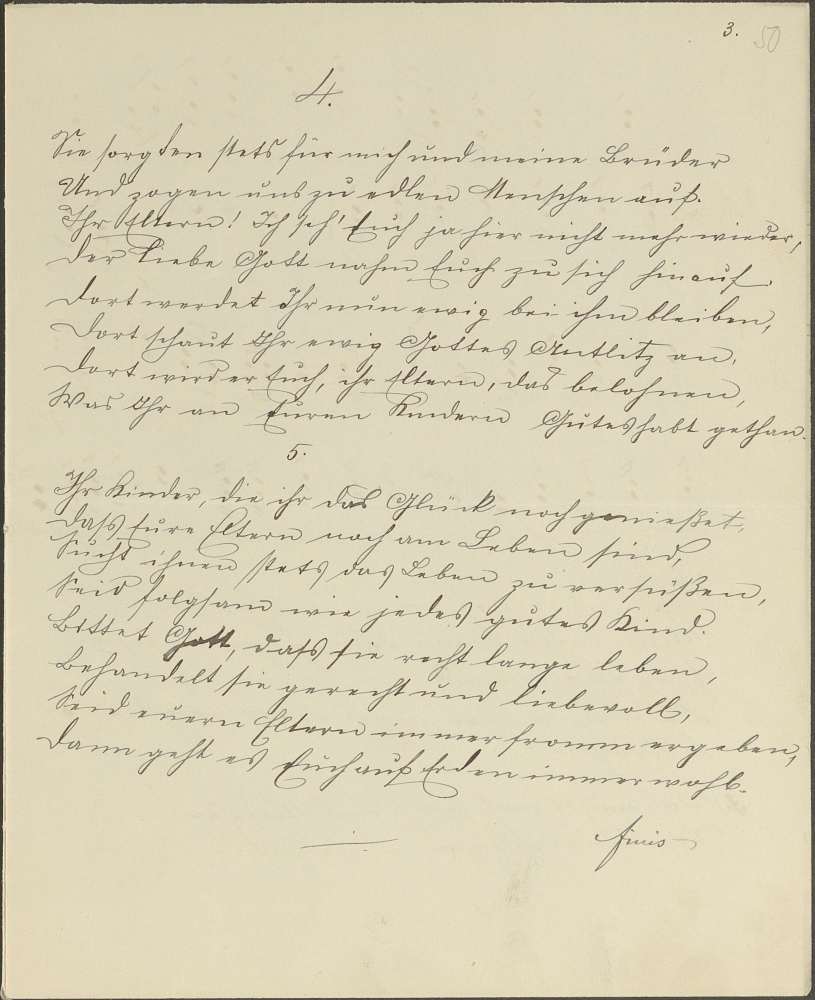 3. 50
4.
Sie sorgden stets für mich und meine Brüder
Und zogen uns zu edlen Menschen auf.
Ihr Eltern! Ich seh' Euch ja hier nicht mehr wieder,
Der liebe Gott nahm Euch zu sich hinauf.
Dort werdet Ihr nun ewig bei ihm bleiben,
Dort schaut Ihr ewig Gottes Antlitz an,
Dort wird er Euch, ihr Eltern, das belohnen,
Was Ihr an Euren Kindern Gutes habt gethan.
5.
Ihr Kinder, die ihr das Glück noch genießet,
Dass Eure Eltern noch am Leben sind,
Sucht ihnen stets das Leben zu versüßen,
Seid folgsam wie jedes gutes Kind.
Bittet Gott, dass sie recht lange leben,
Behandelt sie gerecht und liebevoll,
Seid euern Eltern immer fromm ergeben,
Dann geht es Euch auf Erden immer wohl.
Finis